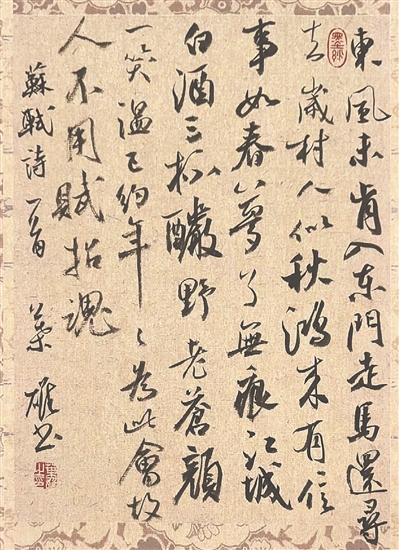 東風未肯入东門走馬還尋
去歲村人似秋鴻来有信
事如春夢了無痕江城
白酒三杯釅野老蒼顔
一笑温已約年〻为此會故
人不用賦招魂
蘇軾詩一首 雄书